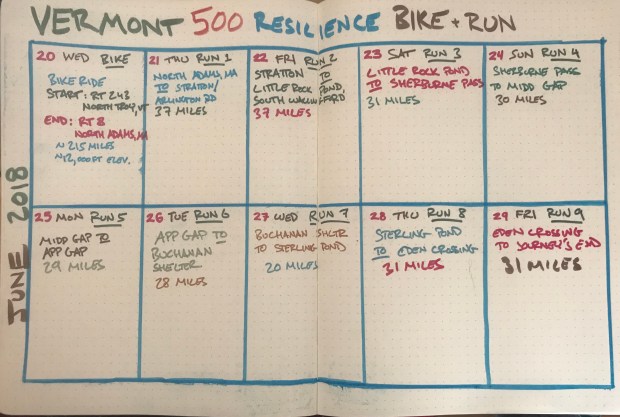 VERMONT 500 RESILIENCE BIKE + RUN
JUNE 2018
20 WED BIKE
BIKE RIDE
START: RT 243
NORTH TROY, VT
END: RT 8
NORTH ADAMS, MA
~ 215 MILES
~12,000 FT ELEV.
21 THU RUN 1
NORTH ADAMS, MA
TO STRATTON/
ARLINGTON RD
37 MILES
22 FRI RUN 2
STRATTON TO
LITTLE ROCK POND,
SOUTH
37 MILES
23 SAT RUN 3
LITTLE ROCK POND
TO SHERBURNE PASS
31 MILES
24 SUN RUN 4
SHERBURNE PASS
TO MIDD GAP
30 MILES
25 MON RUN 5
MIDD GAP TO
APP GAP
29 MILES
26 TUE RUN 6
APP GAP TO
BUCHANAN
SHELTER
28 MILES
27 WED RUN 7
BUCHANAN SHLTR
TO STERLING POND
20 MILES
28 THU RUN 8
STERLING POND
TO EDEN CROSSING
31 MILES
29 FRI RUN 9
EDEN CROSSING
TO JOURNEY'S END
31 MILES